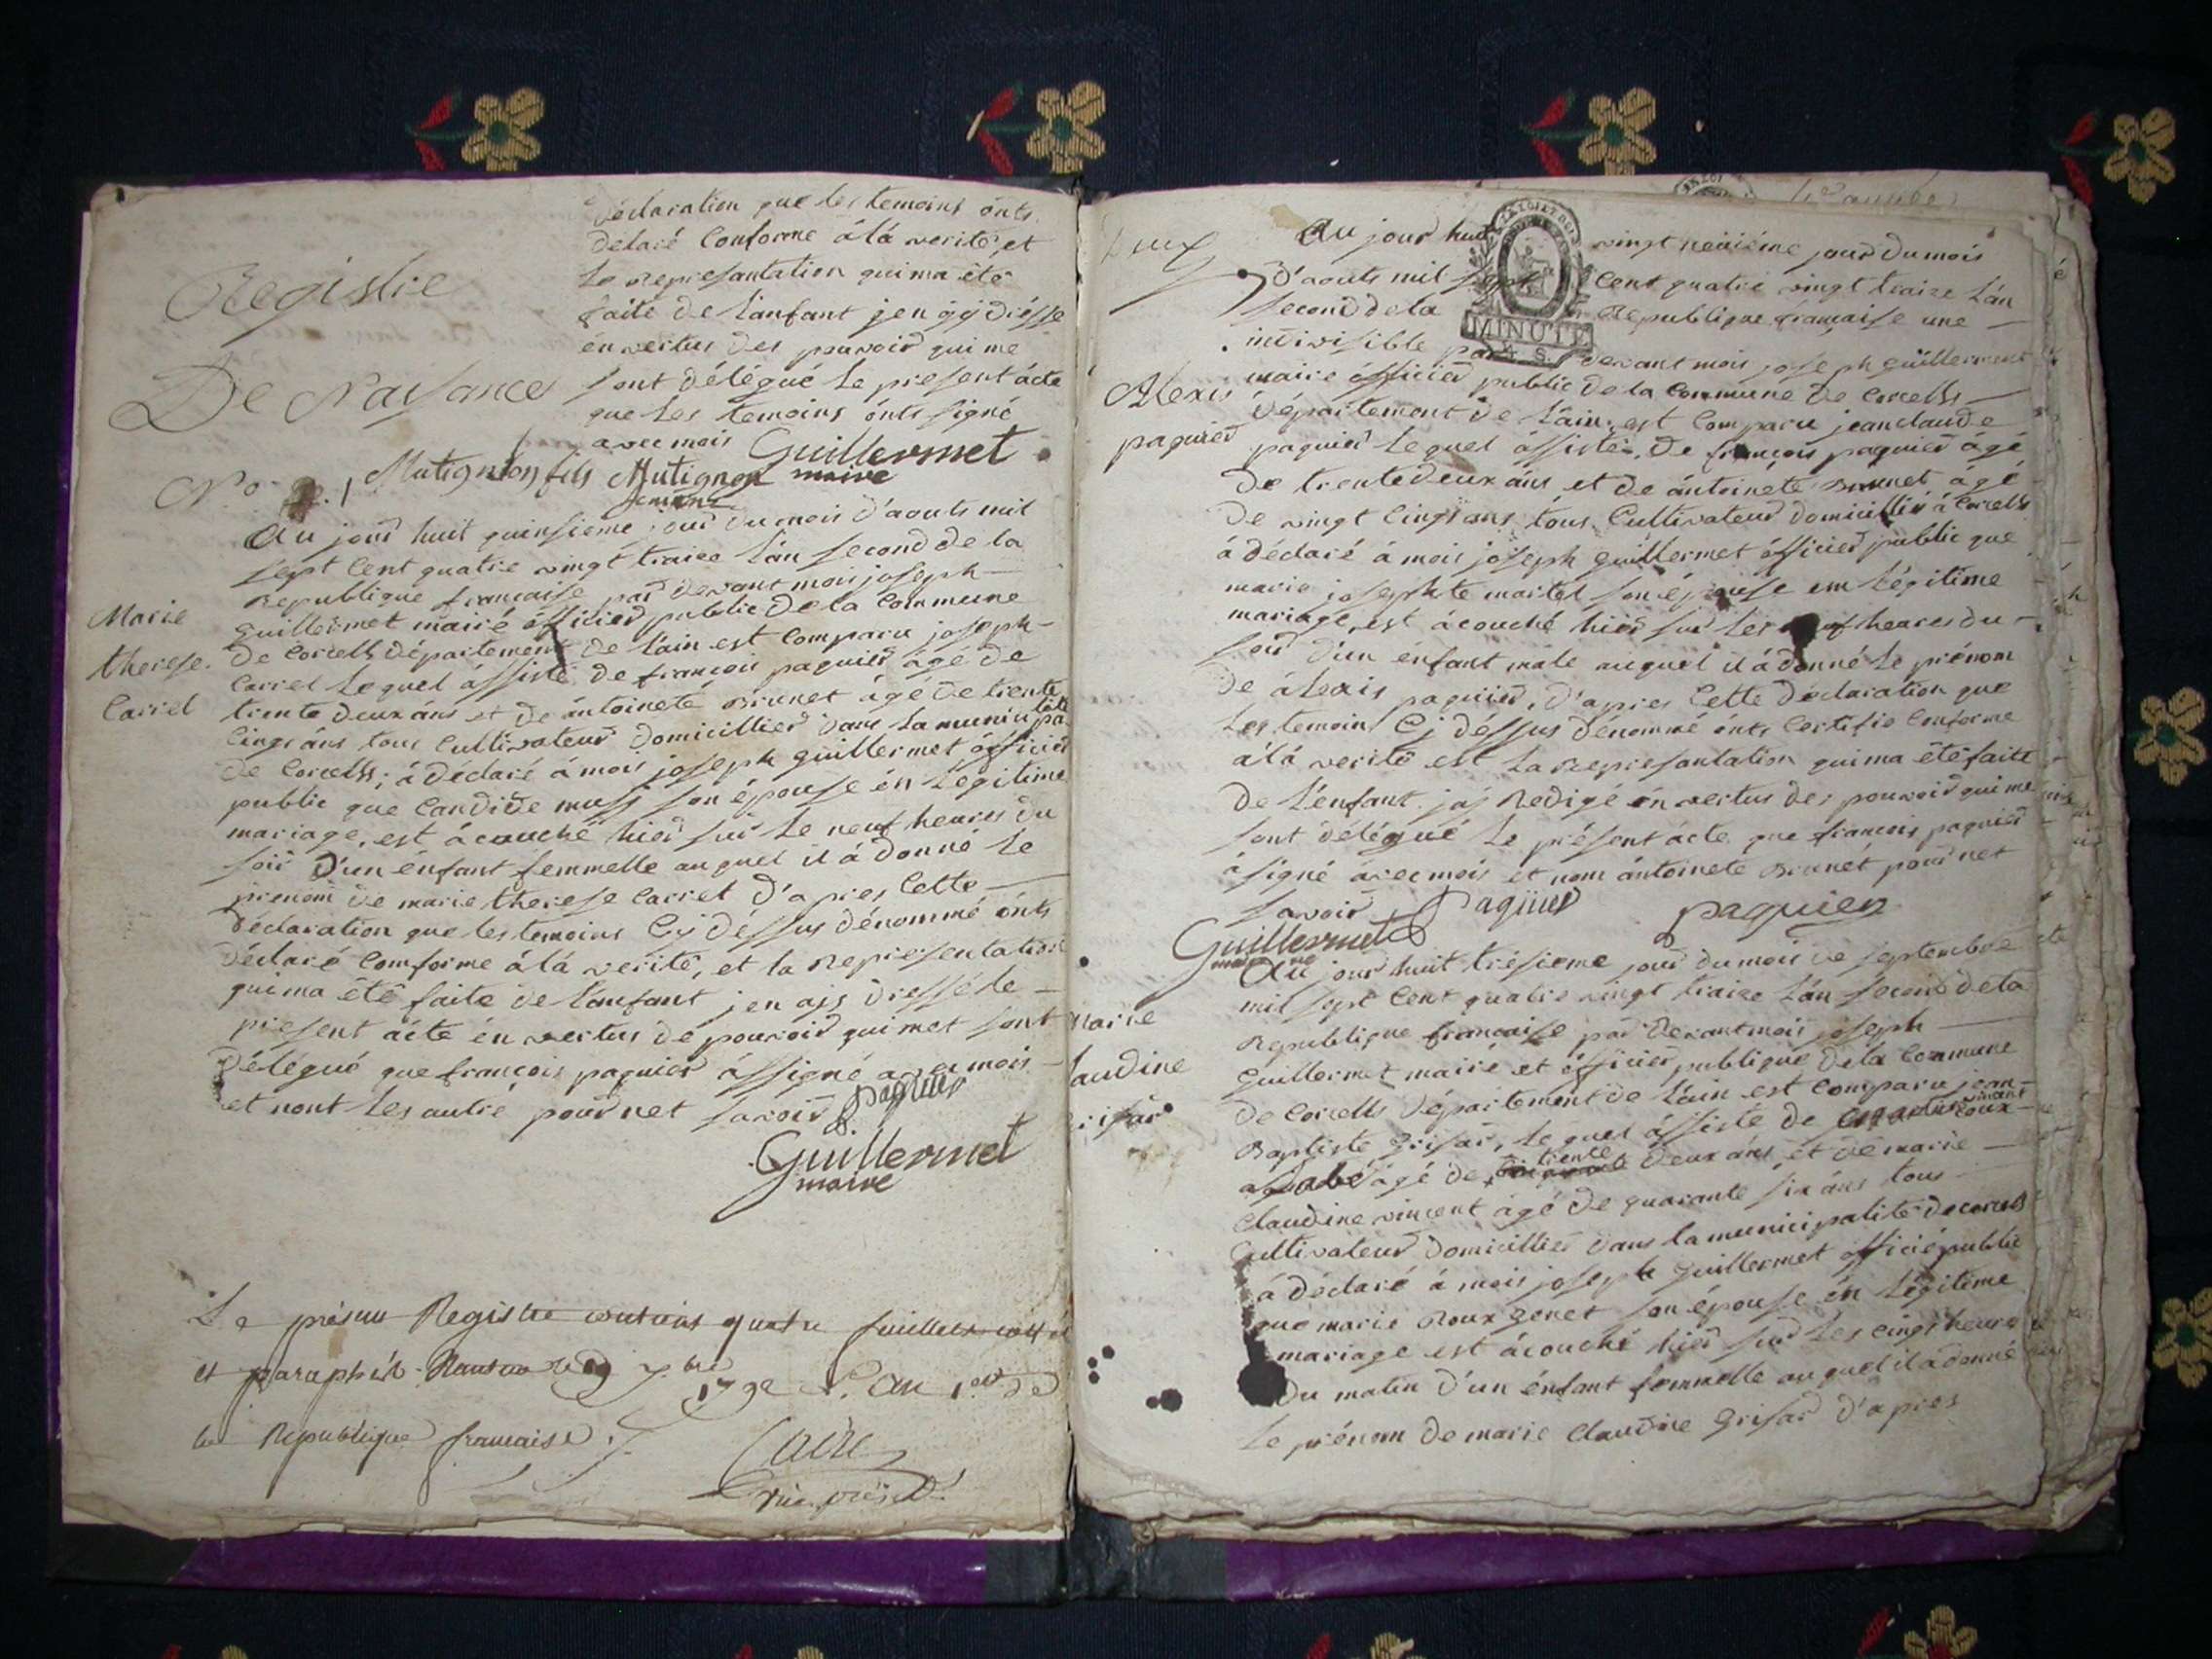 Registre
De Naissance
No 1
Déclaration que les temoins onts
délaré Conforme á lá verité, et
la representation qui ma été
faite de l'anfant jen ay dréssé
en vertus des pouvoir qui me
sont délégué le present ácte
que les temoins ónts signé
avec mois Guillermet
maire
Mutignon fils Mutignon
Au jour huit quinsieme jour du mois d'aouts mil
sept Cent quatre vingt traize l'án second de la
Republique française par devant mois joseph
guillermet mairé ófficier public de la Commune
de Corcells département de l'ain est Comparu joseph
Carret lequel ássisté de françois paquier ágé de
trente deux áns et de ántoineté Brunet ágé de trente
Cinqs áns tous Cultivateur domicillier dans la municipalité
de Corcells; á déclaré á mois joseph guillermet ófficier
public que Candide mussj són épouse én Legitime
mariage, est ácouché hier sur le neuf heures du
soir d'un énfant femmelle auquel il á donné le
prenom de marie therese Carret d'apres Cette
déclaration que les temoins Cij déssus dénommé ónts
déclaré Comforme á lá verité, et la Representation
qui ma été faite de l'anfant jen ajs dressé le
present ácte én vertus de pouvoir qui met sont
délégué que françois paquier ássigné avec mois
et nont les autre pour net savoir paquier
Guillermet
maire
Marie
therese
Carret
Le présent Registre contient quatre feuillets cotés
et paraphés Nantua le 29 7.bre
1792 L'an 1er de
la Republique française
vice présid.
Deux
MINUTE
Au jour huit vingt neuiéme jour du mois
d'aouts mil sept Cent quatre vingt traize l'án
second de la Republique française une
indivisible par devant mois joseph guillermet
maire ófficier public de la Commune de Corcells
département de l'ain, est Comparu jean claude
paquier lequel ássisté, de françois paquier ágé
de trente deux áns et de ántoinete Brunet ágé
de vingt Cinqs ans, tous Cultivateur domicillier á Corcells
á déclaré á mois joseph guillermet ófficier public que
marie josephte martel son épouse em Légitime
mariage, est ácouché hier sur les neuf heures du
soir d'un énfant mâle auquel il á donné le prénom
de álexis paquier, d'apres Cette déclaration que
les temoins Cj déssus dénommé ónts Certifié Conforme
á lá verité est la Representation qui ma été faite
de l'énfant jaj Redigé én vertus des pouvoir qui me
sont délégué le présent ácte que françois paquier
á signé ávec mois et nom ántoinete Brunét pour net
savoir Paquier paquier
Guillermet
maire
Alexis
paquier
Au jour huit trésieme jour du mois de septembre
mil sept Cent quatre vingt traize l'án second de la
Republique française par devant mois joseph
Guillermet mairé et ófficier publique de la Commune
de Corcells département de l'ain est Comparu jean
Baptiste grisar, lequel ássisté de
ágé de trente deux áns et de marie
Claudine vincent ágé de quarante six áns tous
Cultivateur domicillier dans la municipalité de corcells
á déclaré á mois joseph guillermet óffició public
que marie Roux genet son épouse én Légitime
mariage est ácouché hier sur les cinqs heure
du matin d'un énfant femmelle auquel il á donné
le prénom de marie Claudine Grisar d'apres
Marie
laudine
risar